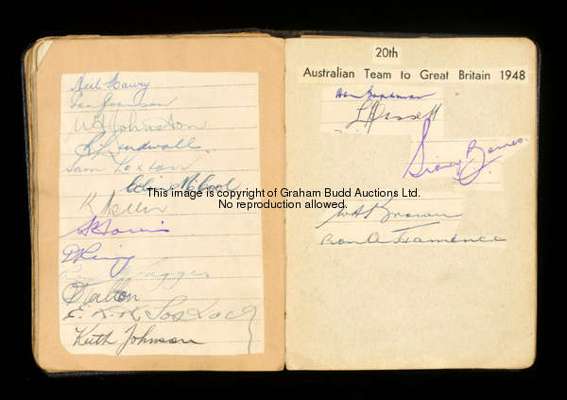 Neil Harvey
Ian Johnson
W A Johnston
R R Lindwall
Sam Loxton
Colin McCool
K Miller
A Morris
D Ring
Ron Saggers
E. R. H. Toshack
Keith Johnson
20th
Australian Team to Great Britain 1948
Don Bradman
L Hassett
Sidney Barnes
W A Brown
Ron A Hamence
This image is copyright of Graham Budd Auctions Ltd.
No reproduction allowed.